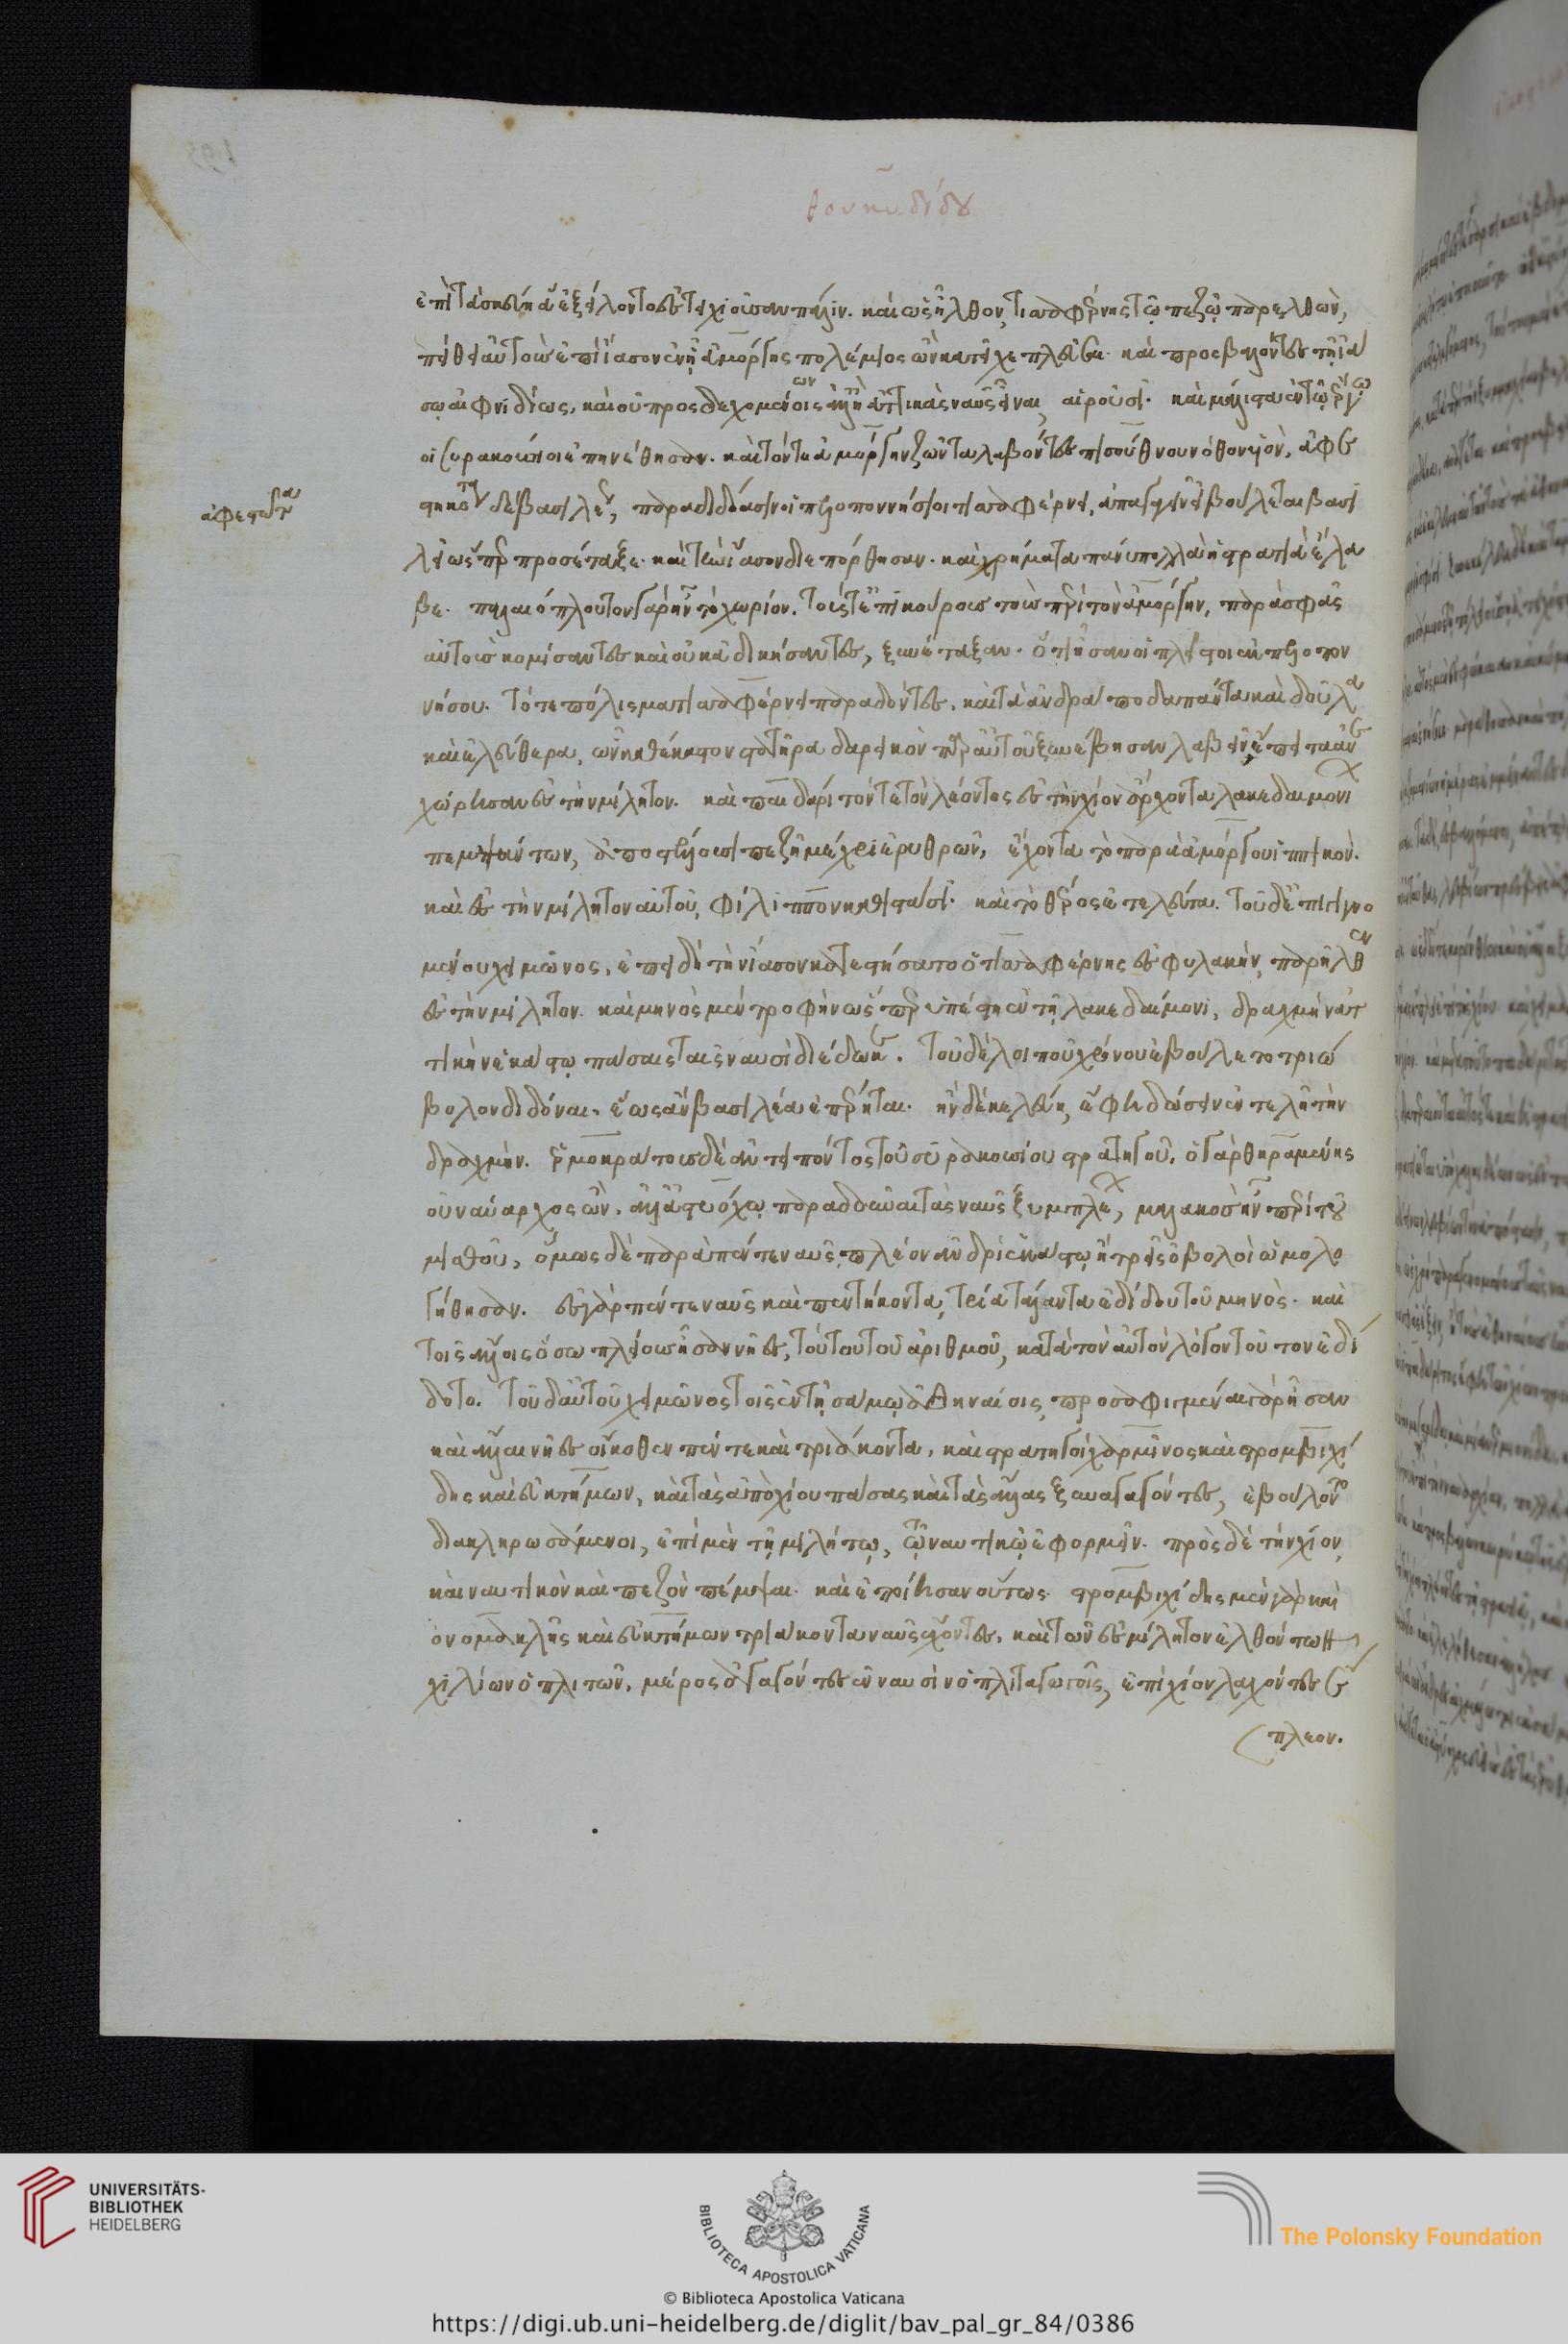 θουκυδίδου
ἐπὶ τὰ σκεύη ἃ ἐξείλοντο ἐς τειχιοῦσαν πάλιν. καὶ ὡς ἦλθον, τισσαφέρνης τῷ πεζῷ παρελθὼν,
πείθει αὐτοὺς ἐπὶ ἴασον ἐν ᾗ ἀμόργης πολέμιος ὢν κατεῖχε πλεῦσαι. καὶ προσβαλόντες τῇ ἰά
σῳ αἰφνιδίως, καὶ οὐ προσδεχομένοις ων ἀλλ' ἢ ἀττικὰς ναῦς εἶναι, αἱροῦσι. καὶ μάλιστα ἐν τῷ ἔργῳ
οἱ συρακούσιοι ἐπῃνέθησαν. καὶ τόν τε ἀμόργην ζῶντα λαβόντες πισσούθνου νόθον υἱὸν, ἀφε
στηκότα δὲ βασιλέως, παραδιδόασιν οἱ πελοποννήσιοι τισσαφέρνει, ἀπαγαγεῖν εἰ βούλεται βασι
ἀφεστῶτα
λεῖ ὥσπερ προσέταξε. καὶ τὴν ἴασον διεπόρθησαν. καὶ χρήματα πάνυ πολλὰ ἡ στρατιὰ ἔλα
βε. παλαιόπλουτον γὰρ ἦν τὸ χωρίον. τούς τε ἐπικούρους τοὺς περὶ τὸν ἀμόργην, παρὰ σφᾶς
αὐτοὺς κομίσαντες καὶ οὐκ ἀδικήσαντες, ξυνέταξαν. ὅτι ἦσαν οἱ πλεῖστοι ἐκ πελοπον
νήσου. τό τε πόλισμα τισσαφέρνει παραδόντες, καὶ τὰ ἀνδράποδα πάντα καὶ δοῦλα
καὶ ἐλεύθερα, ὧν καθ' ἕκαστον στατῆρα δαρεικὸν παρ' αὐτοῦ ξυνέβησαν λαβεῖν, ἔπειτα ἀνε
χώρησαν ἐς τὴν μίλητον. καὶ πεδάριτόν τε τὸν λέοντος ἐς τὴν χίον ἄρχοντα λακεδαιμονίων
πεμψάντων, ἀποστέλλουσι πεζῇ μέχρι ἐρυθρῶν, ἔχοντα τὸ παρὰ ἀμόργου ἐπικουρικὸν.
καὶ ἐς τὴν μίλητον αὐτοῦ, φίλιππον καθιστᾶσι. καὶ τὸ θέρος ἐτελεύτα. τοῦ δ' ἐπιγιγνο
μένου χειμῶνος, ἐπειδὴ τὴν ἴασον κατεστήσατο ὁ τισσαφέρνης ἐς φυλακὴν, παρῆλθεν
ἐς τὴν μίλητον. καὶ μηνὸς μὲν τροφὴν ὥσπερ ὑπέστη ἐν τῇ λακεδαίμονι, δραχμὴν ἀτ
τικὴν ἑκάστῳ πάσαις ταῖς ναυσὶ διέδωκε. τοῦ δὲ λοιποῦ χρόνου ἐβούλετο τριώ
βολον διδόναι, ἕως ἂν βασιλέα ἐπέρηται. ἢν δὲ κελεύῃ, ἔφη δώσειν ἐντελῆ τὴν
δραχμὴν. ἑρμοκράτους δὲ ἀντειπόντος τοῦ συρακουσίου στρατηγοῦ, ὁ γὰρ θηραμένης
οὐ ναύαρχος ὢν, ἀλλ' ἀστυόχῳ παραδοῦναι τὰς ναῦς ξυμπλέων, μαλακὸς ἦν περὶ τοῦ
μισθοῦ, ὅμως δὲ παρὰ πέντε ναῦς πλέον ἀνδρὶ ἑκάστῳ ἢ τρεῖς ὀβολοὶ ὡμολο
γήθησαν. ἐς γὰρ πέντε ναῦς καὶ πεντήκοντα, τρία τάλαντα ἐδίδου τοῦ μηνὸς. καὶ
τοῖς ἄλλοις ὅσω πλείους ἦσαν νῆες, τούτου τοῦ ἀριθμοῦ, κατὰ τὸν αὐτὸν λόγον τοῦτον ἐδί
δοτο. τοῦ δ' αὐτοῦ χειμῶνος τοῖς ἐν τῇ σάμῳ ἀθηναίοις, προσαφιγμέναι γὰρ ἦσαν
καὶ ἄλλαι νῆες οἴκοθεν πέντε καὶ τριάκοντα, καὶ στρατηγοὶ χαρμῖνος καὶ στρομβιχί
δης καὶ εὐκτήμων, καὶ τὰς ἀπὸ χίου πάσας καὶ τὰς ἄλλας ξυναγαγόντες, ἐβούλοντο
διακληρωσάμενοι, ἐπὶ μὲν τῇ μιλήτῳ, τῷ ναυτικῷ ἐφορμεῖν. πρὸς δὲ τὴν χίον,
καὶ ναυτικὸν καὶ πεζὸν πέμψαι. καὶ ἐποίησαν οὕτως. στρομβιχίδης μὲν γὰρ καὶ
ὀνομακλῆς καὶ εὐκτήμων τριάκοντα ναῦς ἔχοντες, καὶ τῶν ἐς μίλητον ἐλθόντων
χιλίων ὁπλιτῶν, μέρος ἄγαγόντες ἐν ναυσὶν ὁπλιταγωγοῖς, ἐπὶ χίον λαχόντες ἔ
πλεον.
UNIVERSITÄTS-
BIBLIOTHEK
HEIDELBERG
BIBLIOTECA APOSTOLICA VATICANA
The Polonsky Foundation
© Biblioteca Apostolica Vaticana
https://digi.ub.uni-heidelberg.de/diglit/bav_pal_gr_84/0386